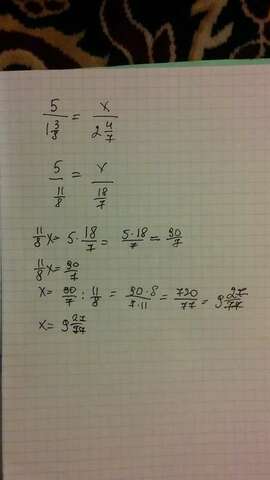 5/1 3/8 = x/2 4/7
5/11/8 = x/18/7
11/8 x = 5 · 18/7 = 5·18/7 = 90/7
11/8 x = 90/7
x = 90/7 : 11/8 = 90·8/7·11 = 720/77 = 9 27/77
x = 9 27/77